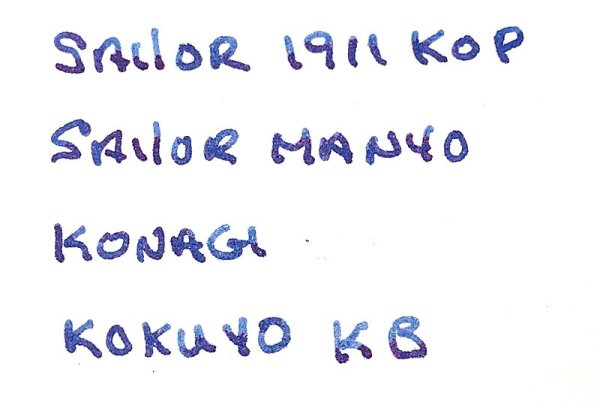 SAilOR 1911 KOP
SAilOR MANYO
KONAGi
KOKUYO KB